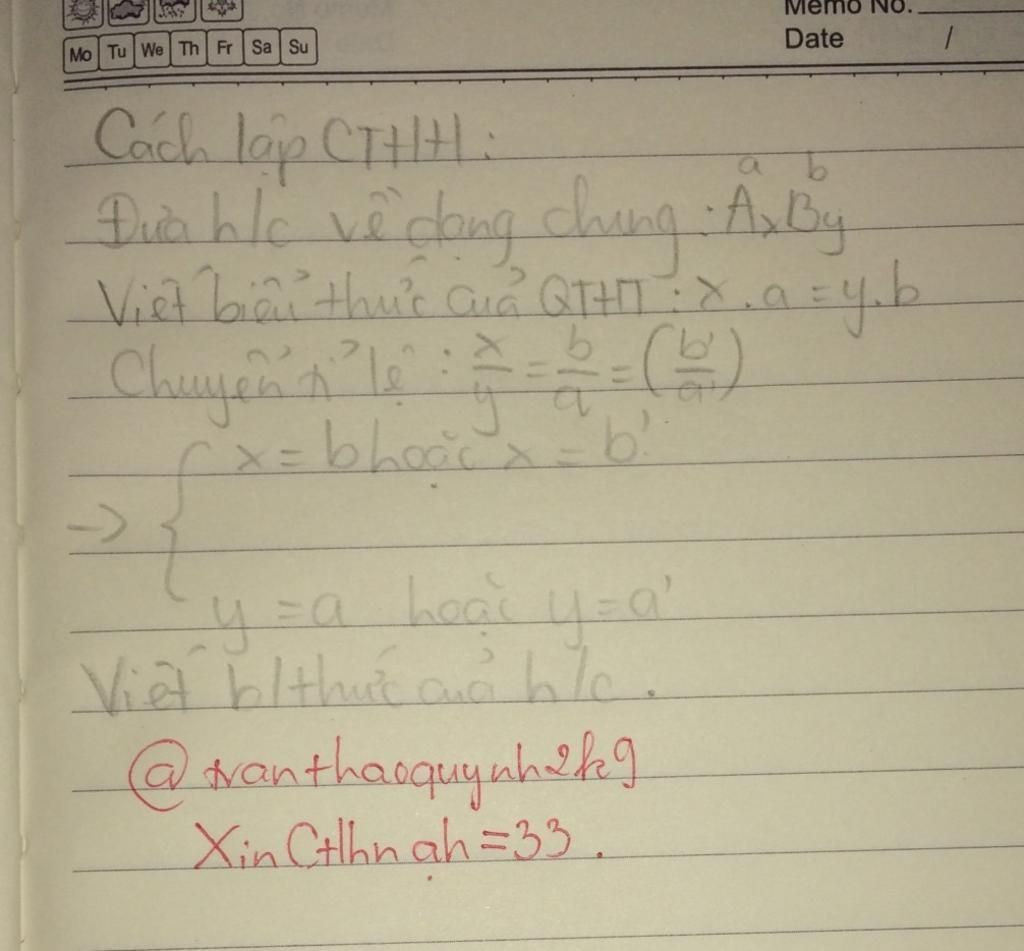 Memo No.
Mo Tu We Th Fr Sa Su
Date /
Cách lập CTHH :
Đưa h/c về dạng chung : AxBy a b
Viết biểu thức cuả QTHT : x . a = y . b
Chuyển tỉ lệ : x/y = b/a = (b'/a')
-> { x = b hoặc x = b'
y = a hoặc y = a'
Viết b/thức cuả h/c .
@tranthaoquynh2k9
Xin Ctlhn ạh =33 .